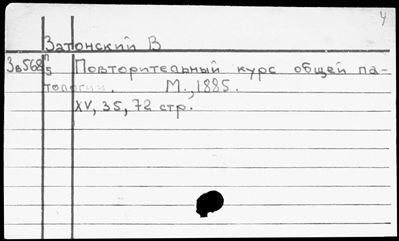 У
Затонский В
Зв568 п/5 Повторительный курс общей па-
тологии. М., 1885.
XV, 35, 72 стр.